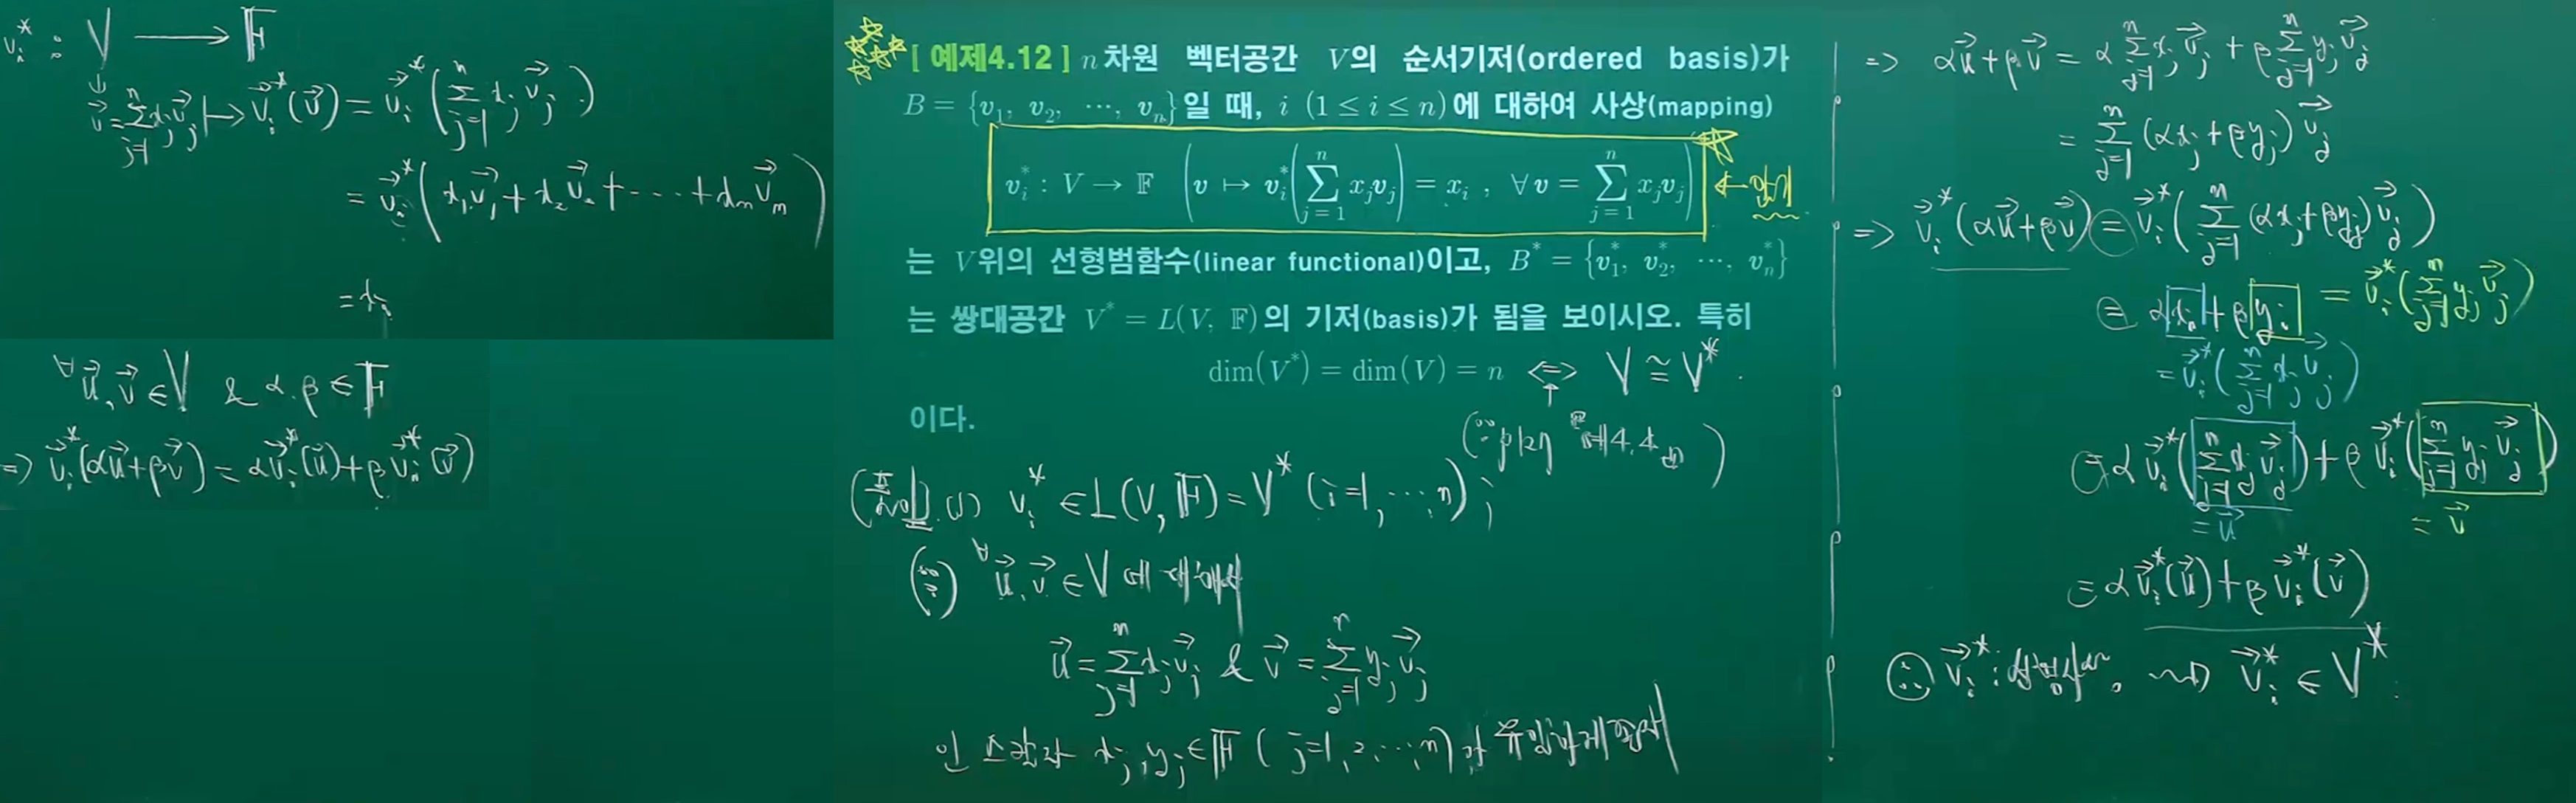 vᵢ* : V ⟶ 𝔽
v⃗ = Σ_{j=1}^{n} xⱼv⃗ⱼ ↦ v⃗ᵢ*(v⃗) = v⃗ᵢ*(Σ_{j=1}^{n} xⱼv⃗ⱼ)
= v⃗ᵢ*(x₁v⃗₁ + x₂v⃗₂ + ⋯ + xₙv⃗ₙ)
= xᵢ
∀u⃗, v⃗ ∈ V & α, β ∈ 𝔽
⇒ v⃗ᵢ*(αu⃗+βv⃗) = αv⃗ᵢ*(u⃗) + βv⃗ᵢ*(v⃗)
[ 예제4.12 ] n차원 벡터공간 V의 순서기저(ordered basis)가
B = {v₁, v₂, ⋯, vₙ}일 때, i (1 ≤ i ≤ n)에 대하여 사상(mapping)
vᵢ* : V → 𝔽 (v ↦ vᵢ*(Σ_{j=1}^{n} xⱼvⱼ) = xᵢ , ∀v = Σ_{j=1}^{n} xⱼvⱼ) ← 암기
는 V위의 선형범함수(linear functional)이고, B* = {v₁*, v₂*, ⋯, vₙ*}
는 쌍대공간 V* = L(V, 𝔽)의 기저(basis)가 됨을 보이시오. 특히
dim(V*) = dim(V) = n ⇔ V ≅ V*.
이다.
(풀이). (1) vᵢ* ∈ L(V, 𝔽) = V* (i=1, ⋯, n) ;
(∵) ∀u⃗, v⃗ ∈ V에 대해서
u⃗ = Σ_{j=1}^{n} xⱼv⃗ⱼ & v⃗ = Σ_{j=1}^{n} yⱼv⃗ⱼ
인 스칼라 xⱼ, yⱼ ∈ 𝔽 (j=1, 2, ⋯, n)가 유일하게 존재
⇒ αu⃗+βv⃗ = α Σ_{j=1}^{n} xⱼv⃗ⱼ + β Σ_{j=1}^{n} yⱼv⃗ⱼ
= Σ_{j=1}^{n} (αxⱼ+βyⱼ)v⃗ⱼ
⇒ v⃗ᵢ*(αu⃗+βv⃗) = v⃗ᵢ*(Σ_{j=1}^{n} (αxⱼ+βyⱼ)v⃗ⱼ)
= αxᵢ + βyᵢ = v⃗ᵢ*(Σ_{j=1}^{n} yⱼv⃗ⱼ)
= v⃗ᵢ*(Σ_{j=1}^{n} xⱼv⃗ⱼ)
= αv⃗ᵢ*(Σ_{j=1}^{n} xⱼv⃗ⱼ) + βv⃗ᵢ*(Σ_{j=1}^{n} yⱼv⃗ⱼ)
= u⃗ = v⃗
= αv⃗ᵢ*(u⃗) + βv⃗ᵢ*(v⃗)
∴ v⃗ᵢ* : 선형사상. ⇝ v⃗ᵢ* ∈ V*.